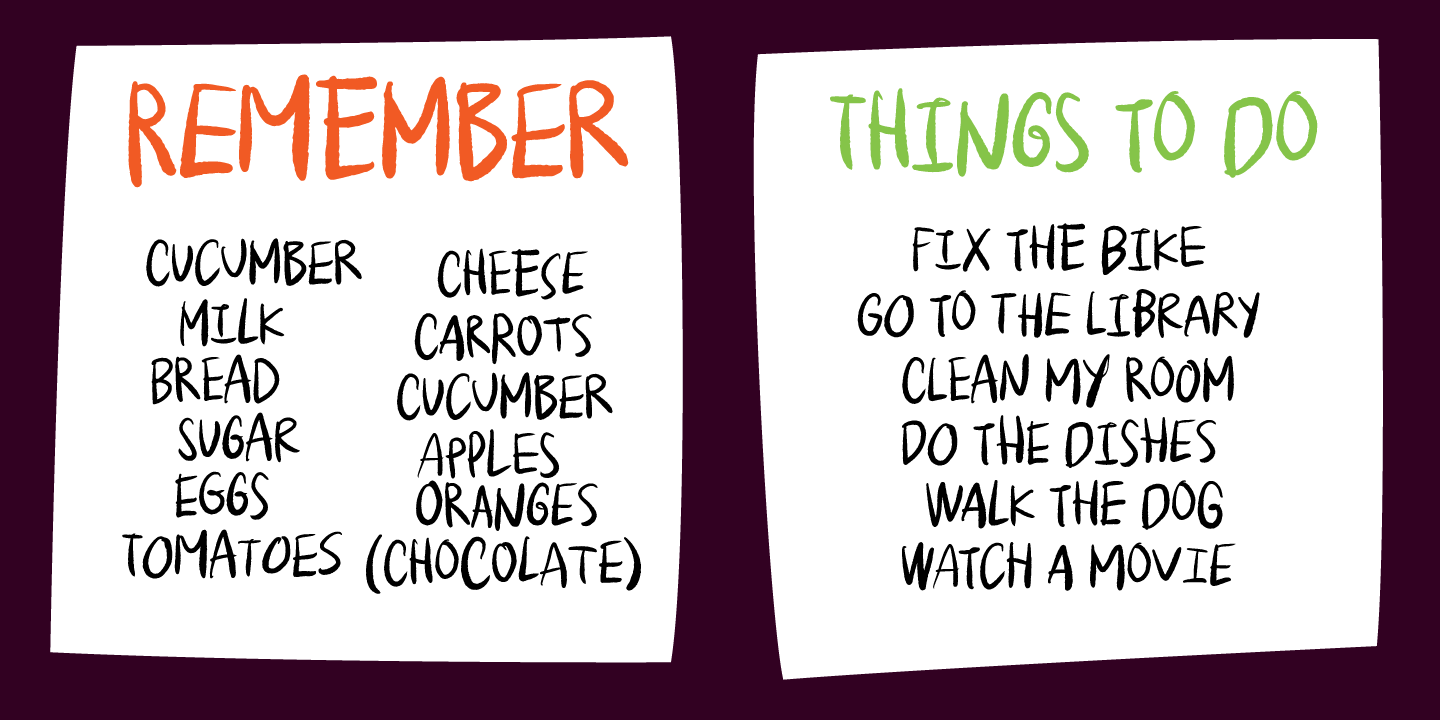 REMEMBER
CUCUMBER
MILK
BREAD
SUGAR
EGGS
TOMATOES
CHEESE
CARROTS
CUCUMBER
APPLES
ORANGES
(CHOCOLATE)
THINGS TO DO
FIX THE BIKE
GO TO THE LIBRARY
CLEAN MY ROOM
DO THE DISHES
WALK THE DOG
WATCH A MOVIE